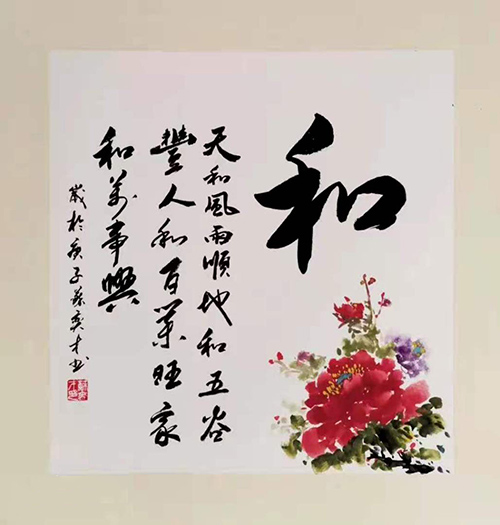 和
天和風雨順地和五谷
豐人和百業旺家
和萬事興
歲於庚子奕才书